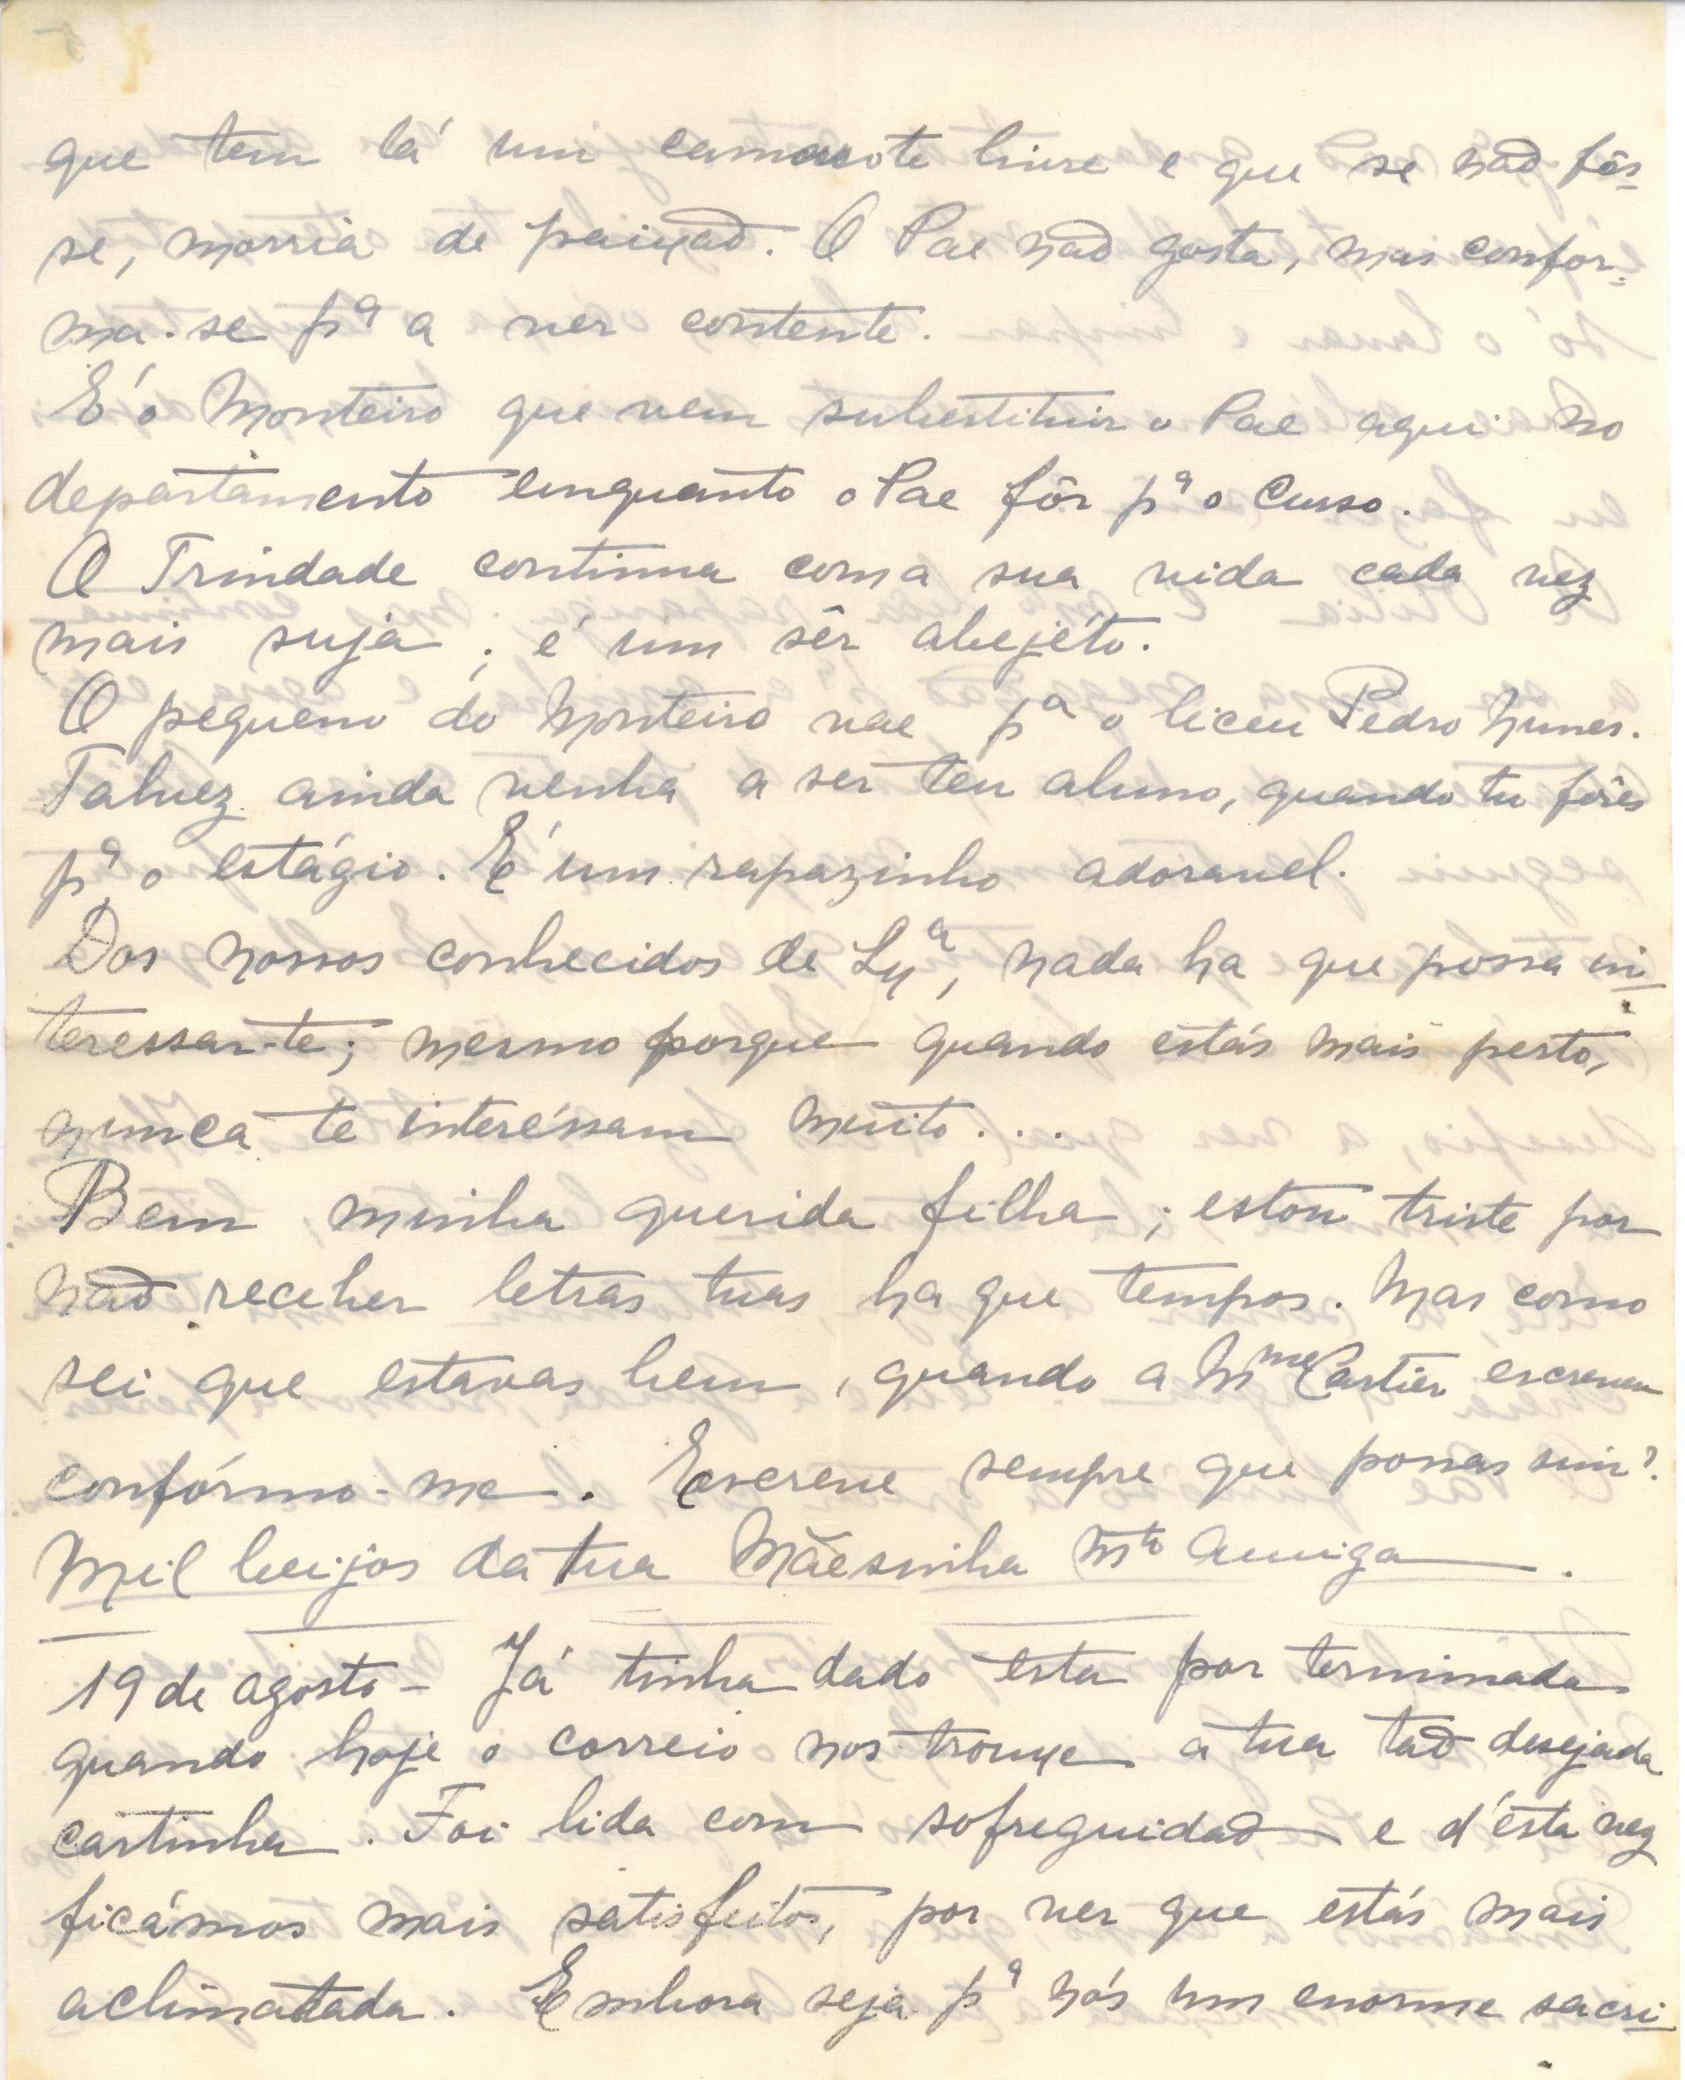 que tem lá um camarote livre e que se não fôs-
se, morria de paixão. O Pae não gosta, mas confor-
ma-se pª a ver contente.
E' o Monteiro que vem substituir o Pae aqui no
departamento enquanto o Pae fôr pª o Curso.
O Trindade continua com a sua vida cada vez
mais suja; é um sêr abejéto.
O pequeno do Monteiro vae pª o liceu Pedro Nunes.
Talvez ainda venha a ser teu aluno, quando tu fôres
pª o estágio. É um rapazinho adoravel.
Dos nossos conhecidos de Lxª, nada ha que possa in-
teressar-te; mesmo porque quando estás mais perto,
nunca te interéssam muito...
Bem minha querida filha; estou triste por
não receber letras tuas, ha que tempos. Mas como
sei que estavas bem, quando a Mme Cartier escreveu
confórmo-me. Escreve sempre que possas sim?
Mil beijos da tua Mãesinha Mto Amiga.
19 de agosto - Já tinha dado esta por terminada
quando hoje o correio nos trouxe a tua tão desejada
cartinha. Foi lida com sofreguidão e d'esta vez
ficámos mais satisfeitos, por ver que estás mais
aclimatada. Embora seja pª nós um enorme sacri-